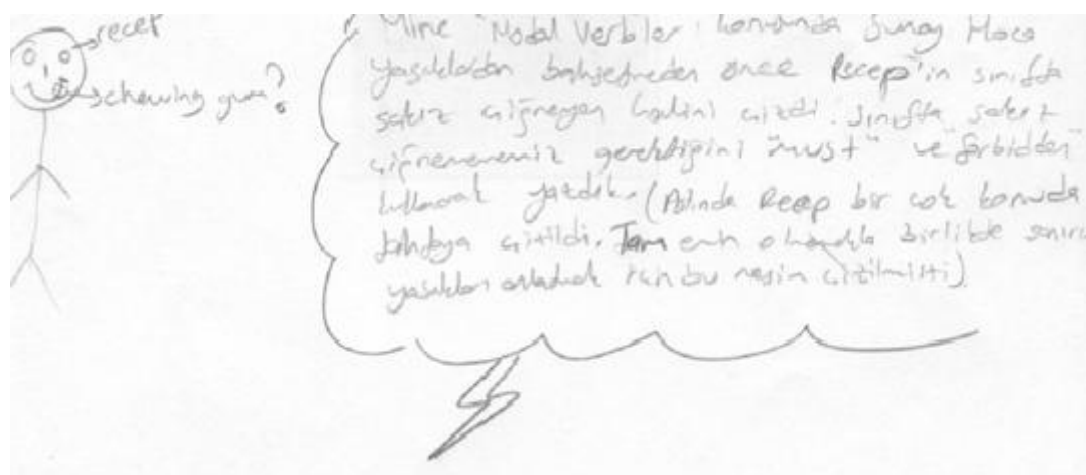 recep
schewing gum?
Mine "Modal Verbler" konusunda Hoca
yasaklardan bahsetmeden önce Recep'in sınıfta
sakız çiğneyen halini çizdi. Sınıfta sakız
çiğnemememiz gerektiğini "must" ve "forbidden"
kullanarak yazdık. (Aslında Recep bir çok konuda
tahtaya çizildi. Tam emin olmamakla birlikte
yasakları için bu resim çizilmişti).